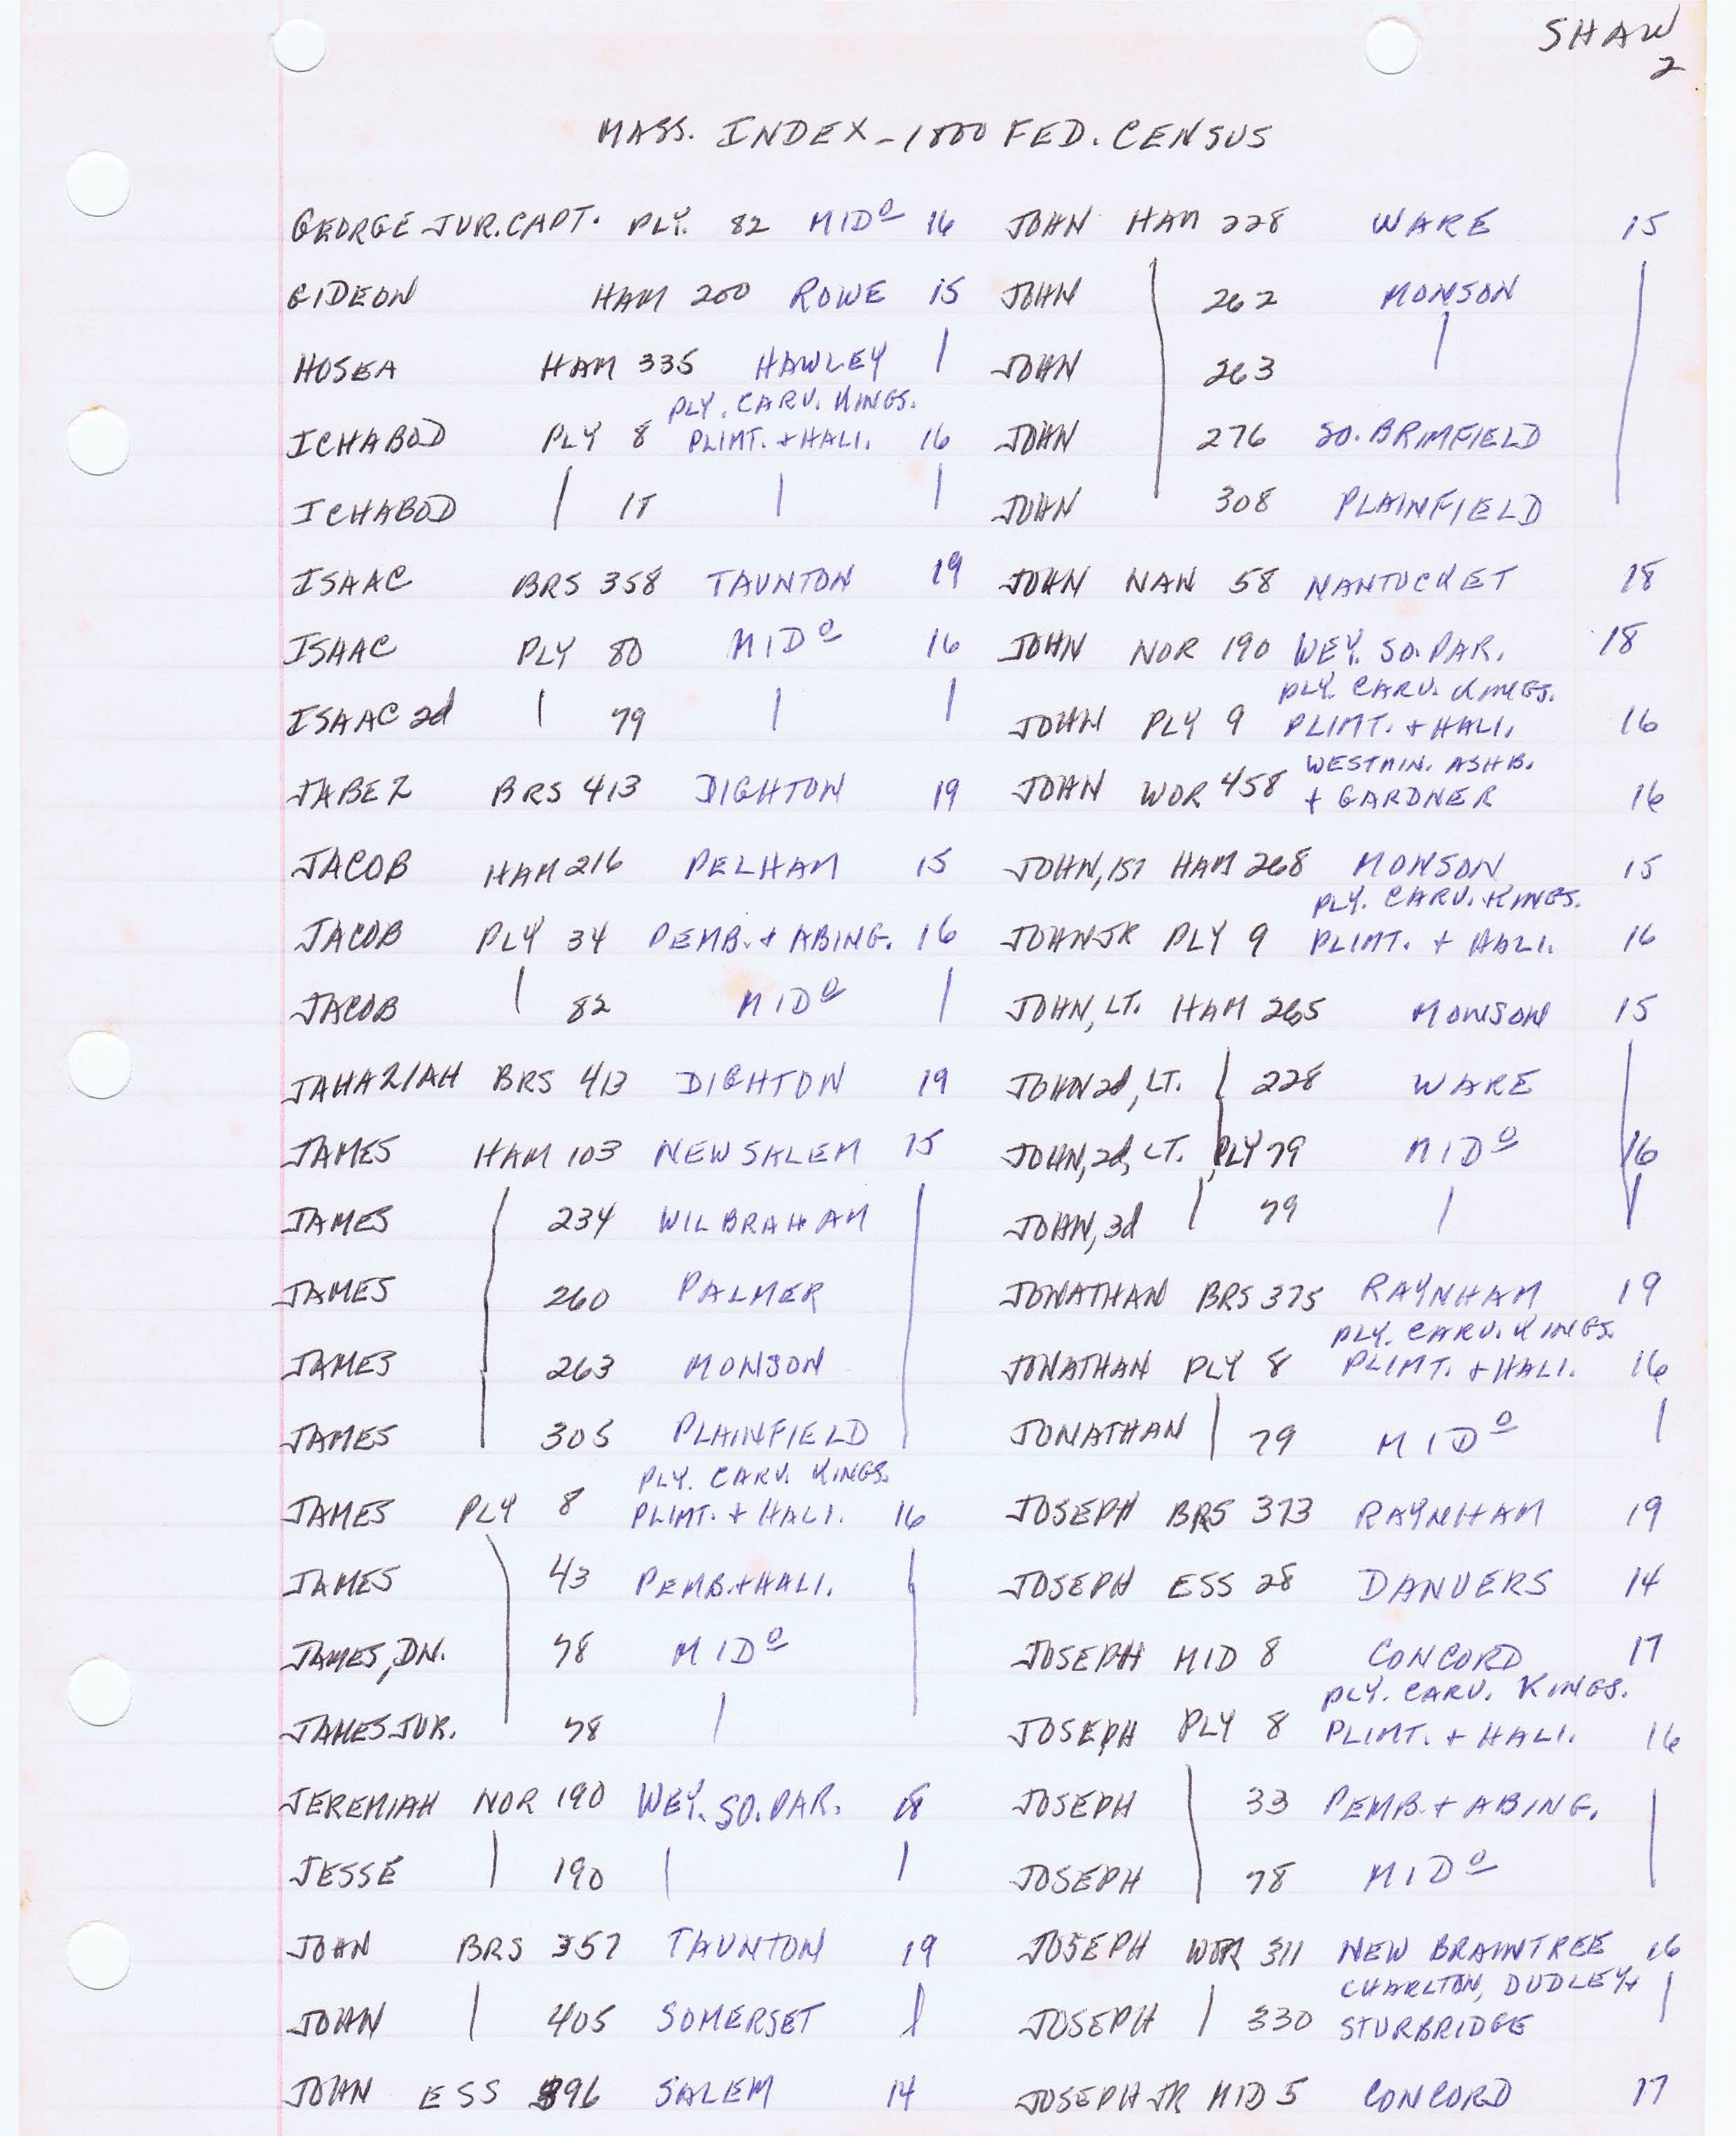 SHAW
2
MASS. INDEX - 1800 FED. CENSUS
GEORGE JUR. CAPT. PLY. 82 MIDº 16
GIDEON HAM 200 ROWE 15
HOSEA HAM 335 HAWLEY |
PLY. CARV. KINGS.
ICHABOD PLY 8 PLIMT. + HALI. 16
ICHABOD | | |
ISAAC BRS 358 TAUNTON 19
ISAAC PLY 80 MIDº 16
ISAAC 2d | 79 | |
JABEZ BRS 413 DIGHTON 19
JACOB HAM 216 PELHAM 15
JACOB PLY 34 PEMB. + ABING. 16
JACOB | 82 MIDº |
JAHAZIAH BRS 413 DIGHTON 19
JAMES HAM 103 NEW SALEM 15
JAMES 234 WILBRAHAM
JAMES 260 PALMER
JAMES 263 MONSON
JAMES 305 PLAINFIELD
PLY. CARV. KINGS.
JAMES PLY 8 PLIMT. + HALI. 16
JAMES 43 PEMB. + HALI.
JAMES, DN. 78 MIDº
JAMES JUR. 78 |
JEREMIAH NOR 190 WEY. SO. PAR. 18
JESSE | 190 | |
JOHN BRS 357 TAUNTON 19
JOHN | 405 SOMERSET |
JOHN ESS 396 SALEM 14
JOHN HAM 228 WARE 15
JOHN 262 MONSON
JOHN 263 |
JOHN 276 SO. BRIMFIELD
JOHN 308 PLAINFIELD
JOHN NAN 58 NANTUCKET 18
JOHN NOR 190 WEY. SO. PAR. 18
PLY. CARV. KINGS.
JOHN PLY 9 PLIMT. + HALI. 16
WESTMIN. ASHB.
JOHN WOR 458 + GARDNER 16
JOHN, 1ST HAM 268 MONSON 15
PLY. CARV. KINGS.
JOHN JR PLY 9 PLIMT. + HALI. 16
JOHN, LT. HAM 265 MONSON 15
JOHN 2d, LT. 228 WARE
JOHN, 2d, LT. PLY 79 MIDº 16
JOHN, 3d | 79 | |
JONATHAN BRS 375 RAYNHAM 19
PLY. CARV. KINGS.
JONATHAN PLY 8 PLIMT. + HALI. 16
JONATHAN | 79 MIDº |
JOSEPH BRS 373 RAYNHAM 19
JOSEPH ESS 28 DANVERS 14
JOSEPH MID 8 CONCORD 17
PLY. CARV. KINGS.
JOSEPH PLY 8 PLIMT. + HALI. 16
JOSEPH 33 PEMB. + ABING.
JOSEPH 78 MIDº
JOSEPH WOR 311 NEW BRAINTREE 16
CHARLTON, DUDLEY +
JOSEPH | 330 STURBRIDGE |
JOSEPH JR MID 5 CONCORD 17